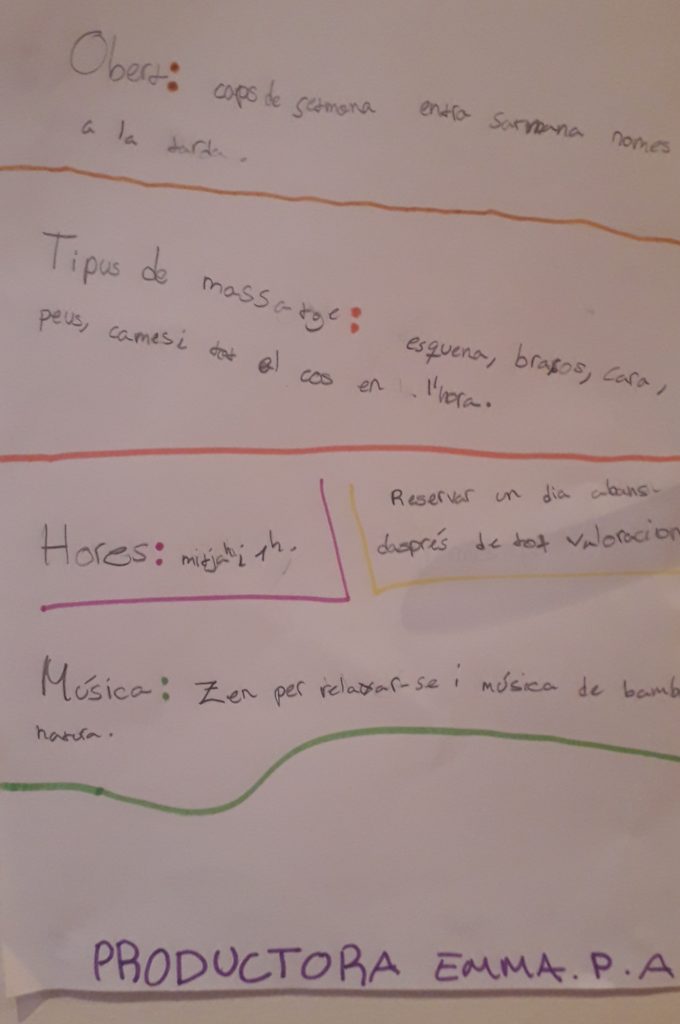 Obert: caps de setmana entra sarmana nomes
a la tarda.
Tipus de massatge: esquena, braços, cara,
peus, cames i tot el cos en l'hora.
Hores: mitja h i 1h.
Reservar un dia abans-
dasprés de tot valoracion
Música: Zen per relaxar-se i música de bamb
natura.
PRODUCTORA EMMA.P.A